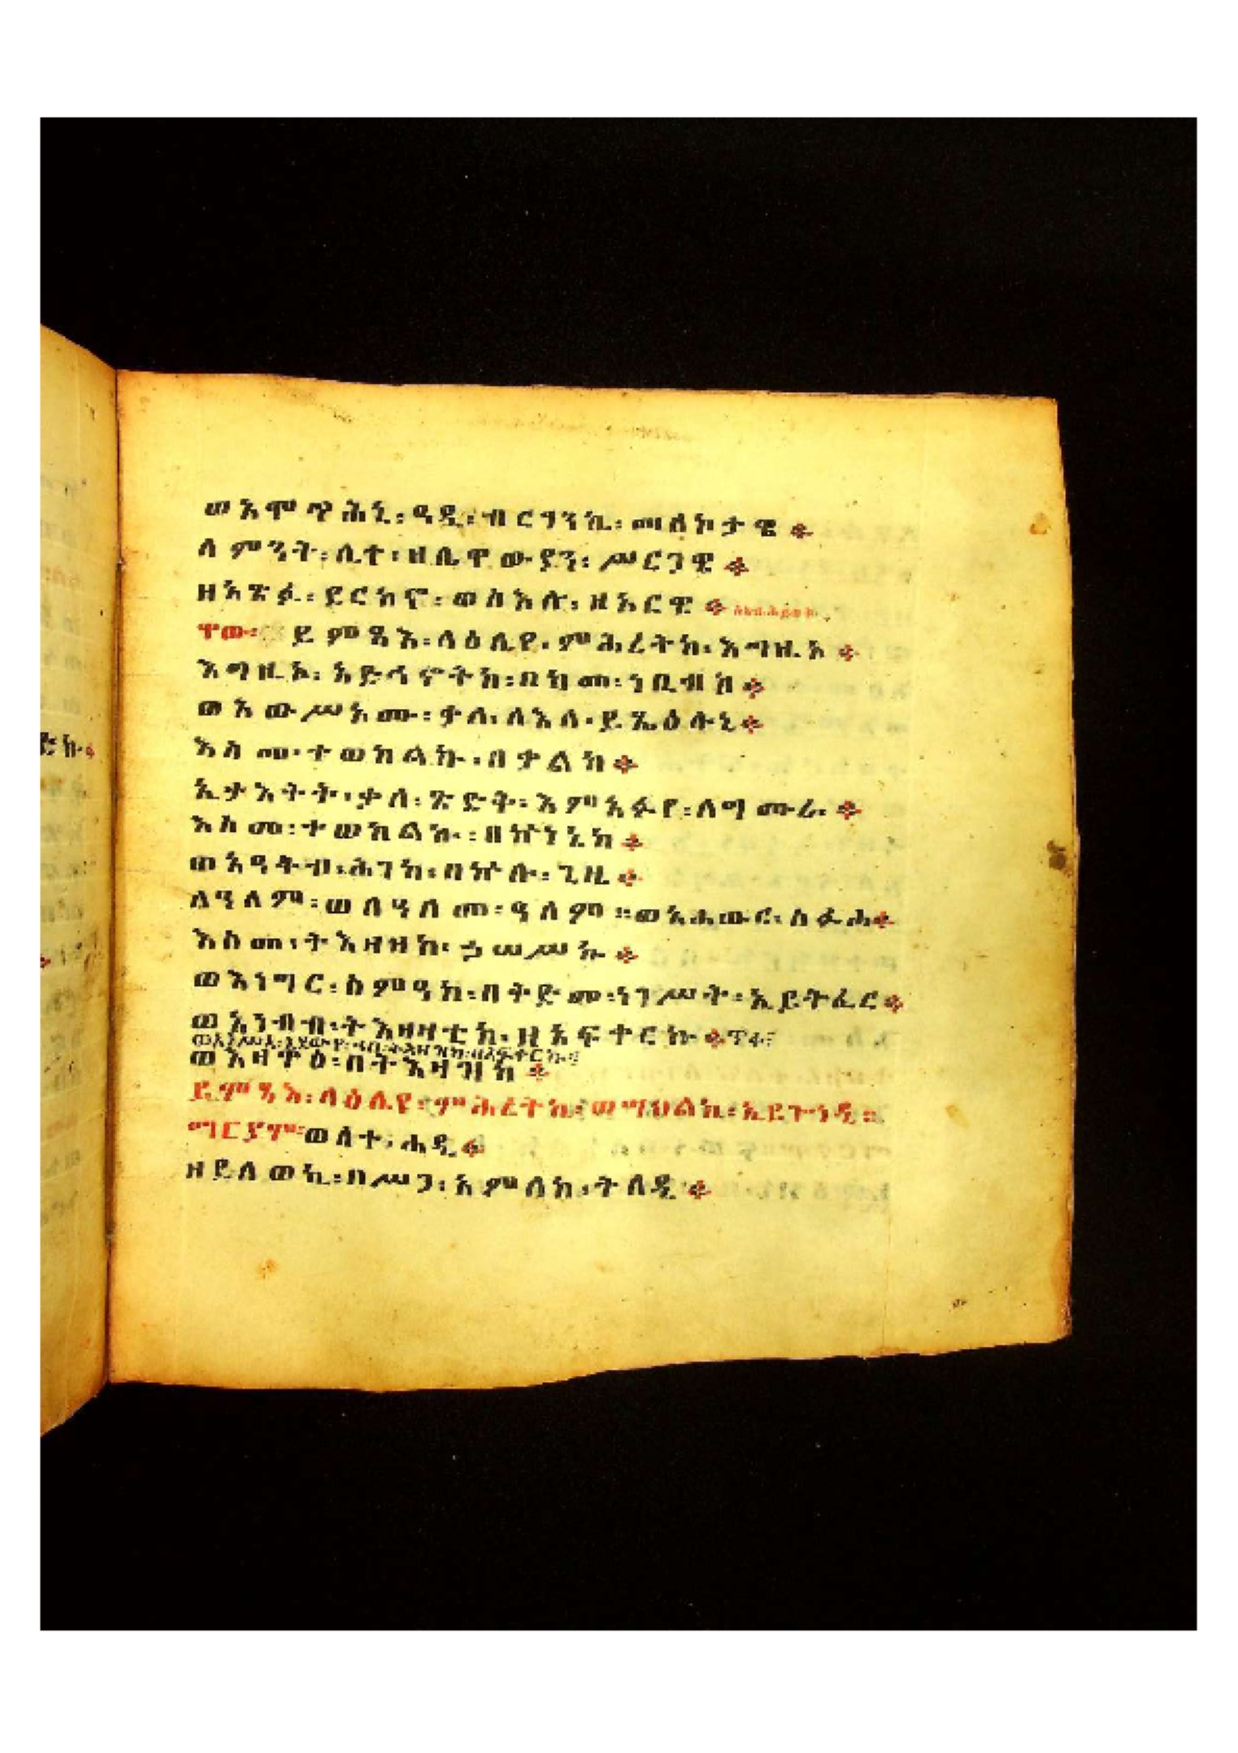 ወአሞጥሕኒ፡ ዓዲ፡ ብርሃንኪ፡ መለኮታዌ ፨
ለምንት፡ ሊተ፡ ዘሌዋውያን፡ ሥርጋዌ ፨
ዘአጽፉ፡ ደርከኖ፡ ወስእሉ፡ ዘአርዌ ፨
ዋው፡ ይምጻእ፡ ላዕሌየ፡ ምሕረትከ፡ እግዚኦ ፨
እግዚኦ፡ አድኅኖትከ፡ በከመ፡ ነቢብከ ፨
ወአውሥኦሙ፡ ቃለ፡ ለእለ፡ ይጼዕሉኒ ፨
እስመ፡ ተወከልኩ፡ በቃልከ ፨
ኢታእትት፡ ቃለ፡ ጽድቅ፡ እምአፉየ፡ ለግሙራ ፨
እስመ፡ ተወከልኩ፡ በኵነኔከ ፨
ወአዓቅብ፡ ሕገከ፡ በኵሉ፡ ጊዜ ፨
ለዓለም፡ ወለዓለመ፡ ዓለም ። ወአሐውር፡ ስፉሐ ፨
እስመ፡ ትእዛዝከ፡ ኃሠሥኩ ፨
ወእነግር፡ ስምዓከ፡ በቅድመ፡ ነገሥት፡ ኢይትፈር ፨
ወአንብብ፡ ትእዛዛቲከ፡ ዘአፍቀርኩ ፨ ጥቀ፡
ወአነሥእ፡ እደውየ፡ ኀበ፡ ትእዛዝከ፡ ዘአፍቀርኩ ።
ወእዛዋዕ፡ በትእዛዝከ ፨
ይምጻእ፡ ላዕሌየ፡ ምሕረትኪ፡ ወሣህልኪ፡ ኢይጐነዲ ።
ማርያም፡ ወለተ፡ ሐዲ ፨
ዘይለወኪ፡ በሥጋ፡ አምላክ፡ ትለዲ ፨